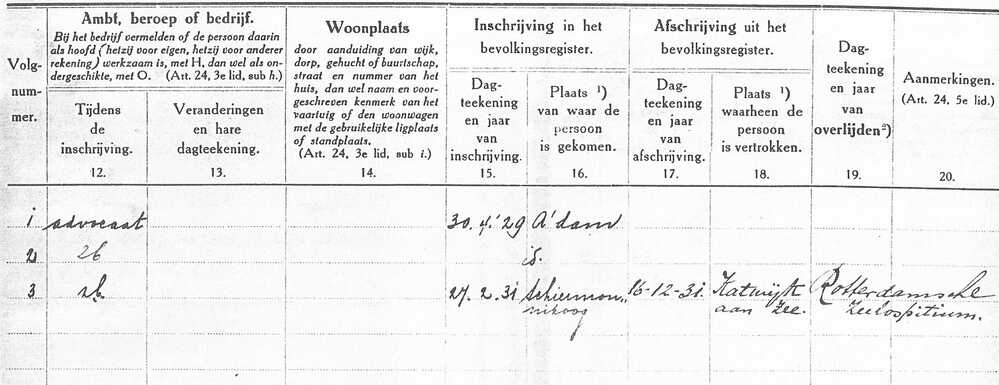 Volgnummer.
Ambt, beroep of bedrijf.
Bij het bedrijf vermelden of de persoon daarin
als hoofd (hetzij voor eigen, hetzij voor anderer
rekening) werkzaam is, met H, dan wel als on-
dergeschikte, met O. (Art. 24, 3e lid, sub h.)
Tijdens
de
inschrijving.
12.
Veranderingen
en hare
dagteekening.
13.
Woonplaats
door aanduiding van wijk,
dorp, gehucht of buurtschap,
straat en nummer van het
huis, dan wel naam en voor-
geschreven kenmerk van het
vaartuig of den woonwagen
met de gebruikelijke ligplaats
of standplaats.
(Art. 24, 3e lid, sub i.)
14.
Inschrijving in het
bevolkingsregister.
Dag-
teekening
en jaar
van
inschrijving.
15.
Plaats ¹)
van waar de
persoon
is gekomen.
16.
Afschrijving uit het
bevolkingsregister.
Dag-
teekening
en jaar
van
afschrijving.
17.
Plaats ¹)
waarheen de
persoon
is vertrokken.
18.
Dag-
teekening
en jaar
van
overlijden²)
19.
Aanmerkingen.
(Art. 24, 5e lid.)
20.
1 advocaat 30.4.'29 A'dam
2 zb id.
3 zb. 27.2.31 Schiermon„ 16-12-31. Katwijk Rotterdamsche
nikoog aan Zee. Zeehospitium.